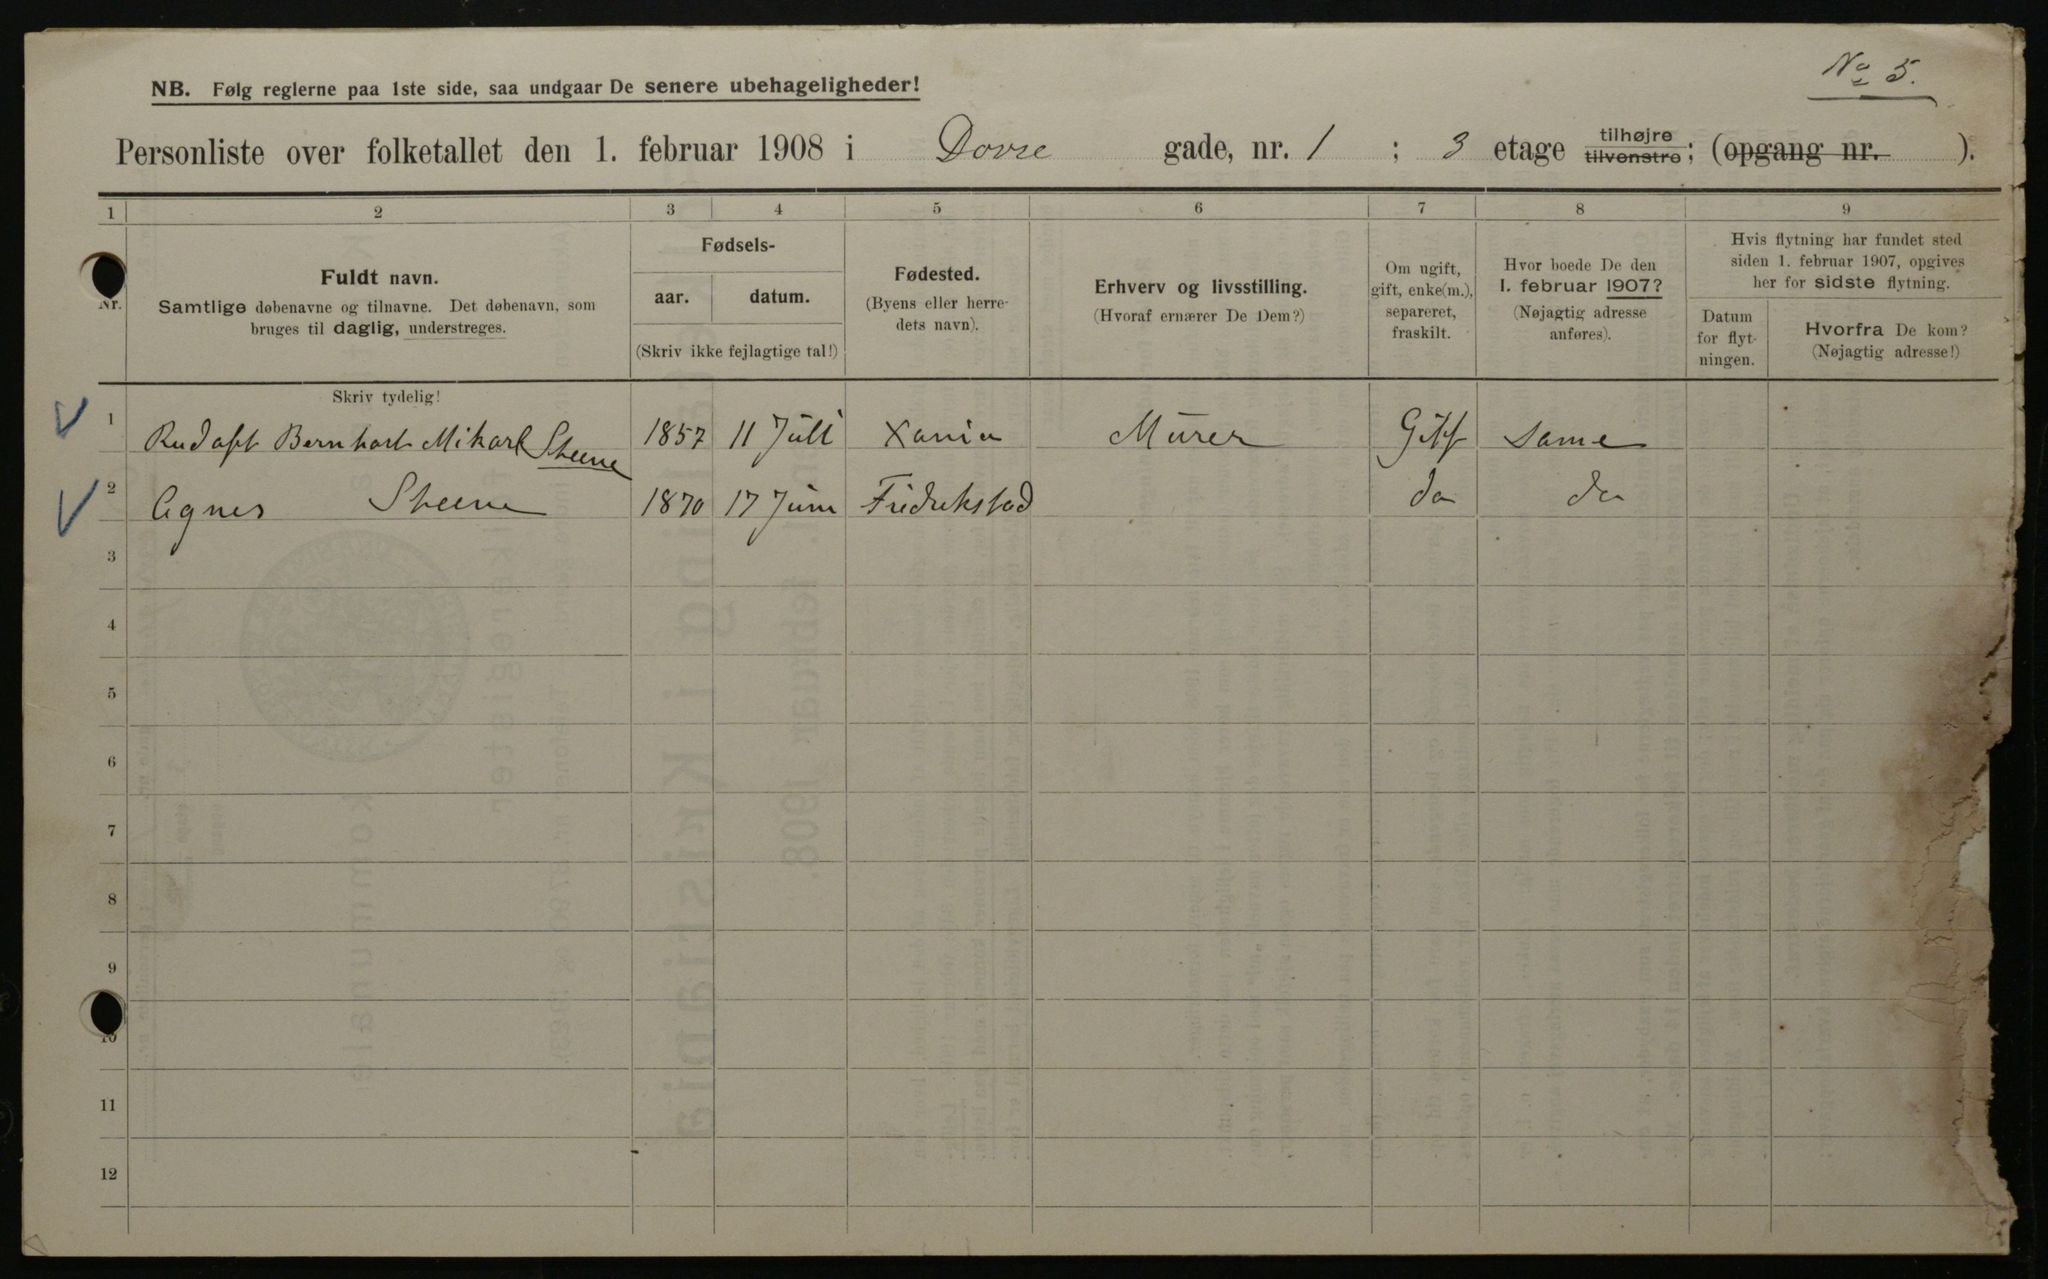 No 5.
NB. Følg reglerne paa 1ste side, saa undgaar De senere ubehageligheder!
Personliste over folketallet den 1. februar 1908 i Dovre gade, nr. 1 ; 3 etage tilhøjre tilvenstre; (opgang nr. ).
1 2 3 4 5 6 7 8 9
Nr.
Fuldt navn.
Samtlige døbenavne og tilnavne. Det døbenavn, som
bruges til daglig, understreges.
Fødsels-
aar. datum.
(Skriv ikke fejlagtige tal!)
Fødested.
(Byens eller herre-
dets navn).
Erhverv og livsstilling.
(Hvoraf ernærer De Dem?)
Om ugift,
gift, enke(m.),
separeret,
fraskilt.
Hvor boede De den
1. februar 1907?
(Nøjagtig adresse
anføres).
Hvis flytning har fundet sted
siden 1. februar 1907, opgives
her for sidste flytning.
Datum
for flyt-
ningen.
Hvorfra De kom?
(Nøjagtig adresse!)
Skriv tydelig!
1 Rudolf Bernhart Mikael Steene 1857 11 Juli Xania Murer Gift Same
2 Agnes Steene 1870 17 Juni Fredrikstad do do
3
4
5
6
7
8
9
10
11
12